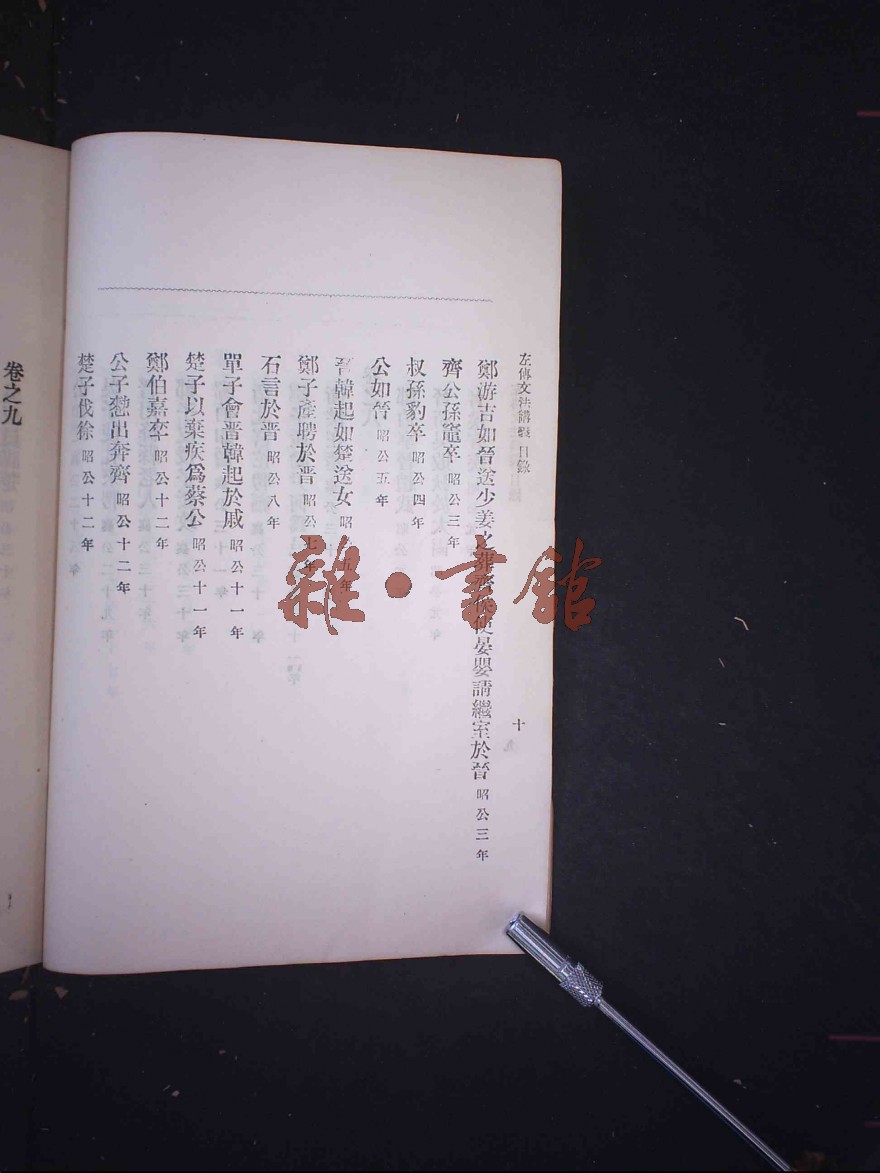 左傳文法講義 目錄
十
鄭游吉如晉送少姜之葬齊侯使晏嬰請繼室於晉 昭公三年
齊公孫竈卒 昭公三年
叔孫豹卒 昭公四年
公如晉 昭公五年
晉韓起如楚送女 昭公五年
鄭子產聘於晋 昭公七年
石言於晋 昭公八年
單子會晋韓起於戚 昭公十一年
楚子以棄疾爲蔡公 昭公十一年
鄭伯嘉卒 昭公十二年
公子憖出奔齊 昭公十二年
楚子伐徐 昭公十二年
卷之九
雜·書館